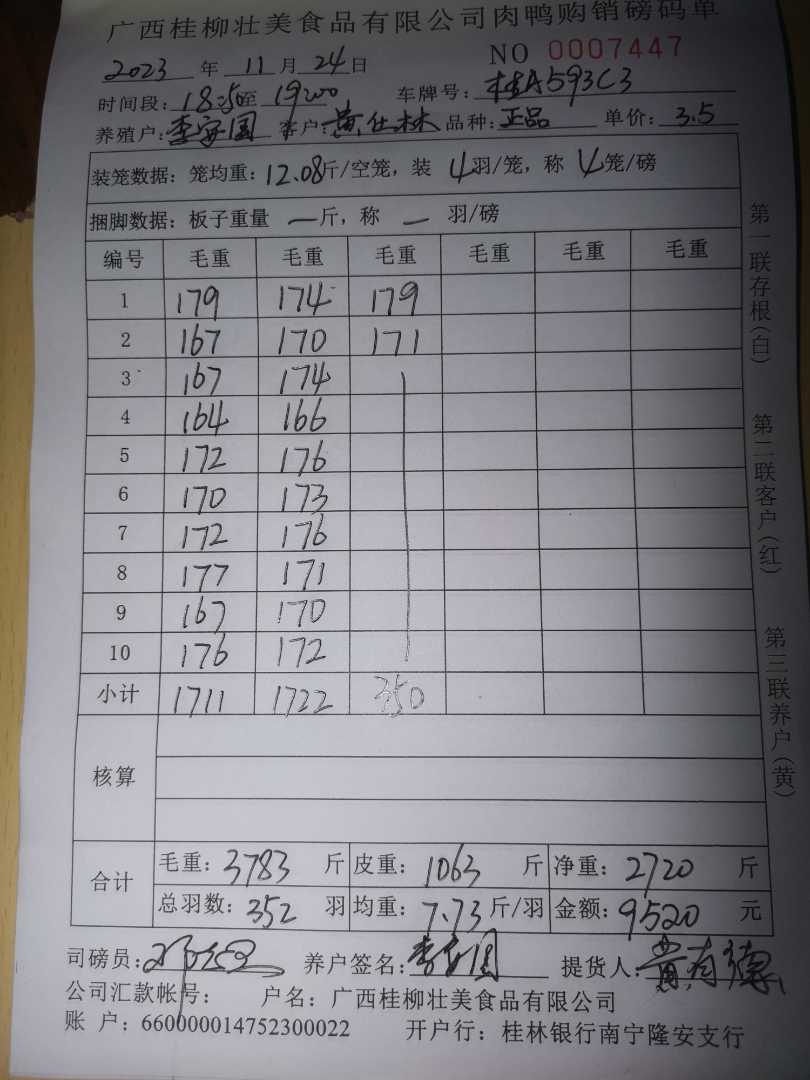 广西桂柳壮美食品有限公司肉鸭购销磅码单
NO 0007447
2023 年 11 月 24 日
时间段: 18:50至 19:00 车牌号: 桂A593C3
养殖户: 李安国 客户: 黄仕林 品种: 正品 单价: 3.5
装笼数据: 笼均重: 12.08斤/空笼, 装 4羽/笼, 称 4笼/磅
捆脚数据: 板子重量 —斤, 称 — 羽/磅
编号 毛重 毛重 毛重 毛重 毛重 毛重
1 179 174 179
2 167 170 171
3 167 174
4 164 166
5 172 176
6 170 173
7 172 176
8 177 171
9 167 170
10 176 172
小计 1711 1722 350
核算
合计 毛重: 3783 斤 皮重: 1063 斤 净重: 2720 斤
总羽数: 352 羽 均重: 7.73斤/羽 金额: 9520 元
司磅员: 养户签名: 李安国 提货人: 黄有德
公司汇款帐号: 户名: 广西桂柳壮美食品有限公司
账 户: 660000014752300022 开户行: 桂林银行南宁隆安支行
第一联存根(白) 第二联客户(红) 第三联养户(黄)